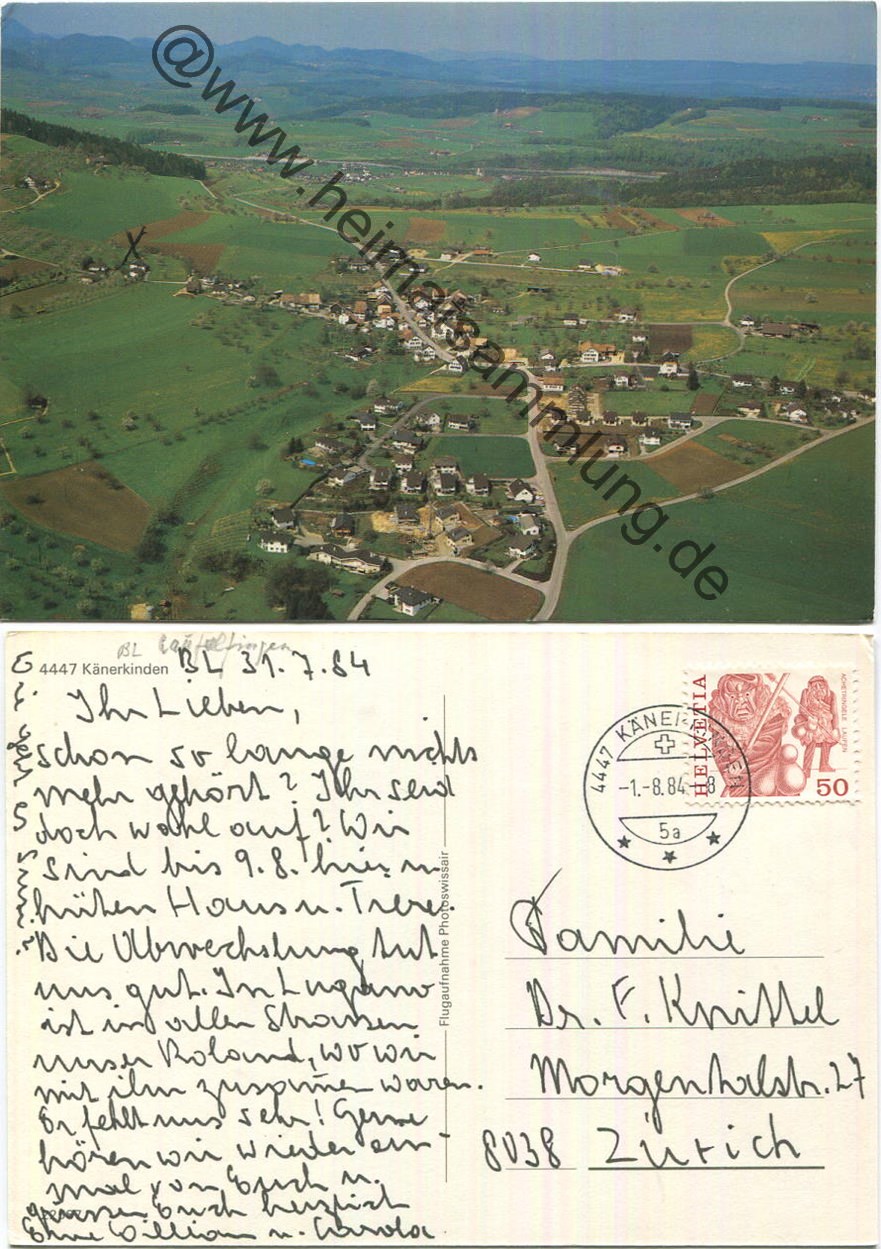 @www.heimatsammlung.de
X
BL Läufelfingen
4447 Känerkinden BL 31.7.84
Ihr Lieben,
schon so lange nichts
mehr gehört? Ihr seid
doch wohl auf? Wir
sind bis 9.8. hier u.
hüten Haus u. Tiere.
Die Abwechslung tut
uns gut. In Lugano
ist in allen Strassen
unser Roland, wo wir
mit ihm zusammen waren.
Er fehlt uns sehr! Gerne
hören wir wieder ein-
mal von Euch u.
grüssen Euch herzlich
Eure William u. Carola
Flugaufnahme Photoswissair
4447 KÄNERKINDEN
-1.-8.84 8
5a
HELVETIA
ACHETRINGELE LAUPEN
50
Familie
Dr. F. Knittel
Morgentalstr. 27
8038 Zürich